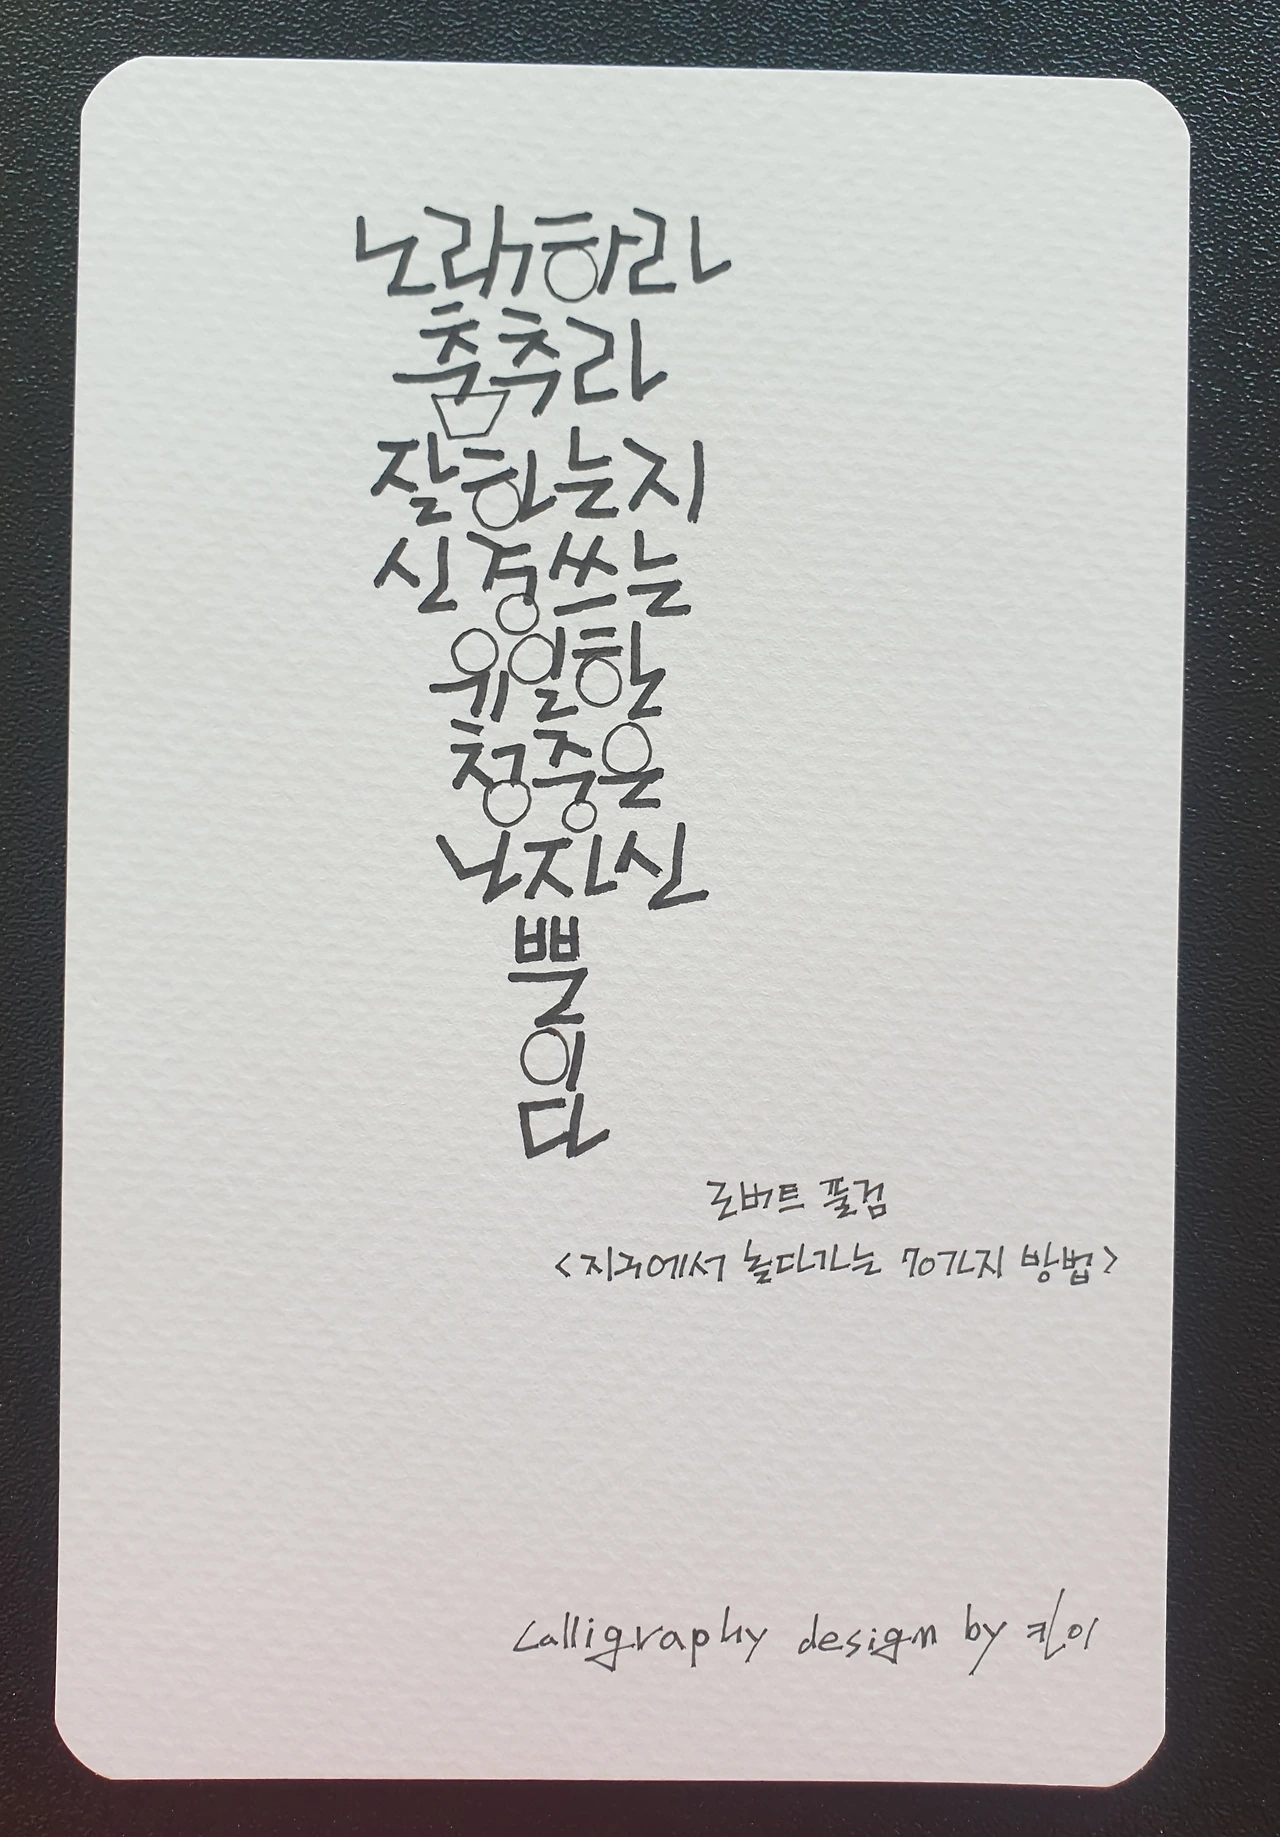 노래하라
춤추라
잘하는지
신경쓰는
유일한
청중은
나자신
뿐
이
다
로버트 풀검
<지구에서 놀다가는 70가지 방법>
Calligraphy design by 킨이